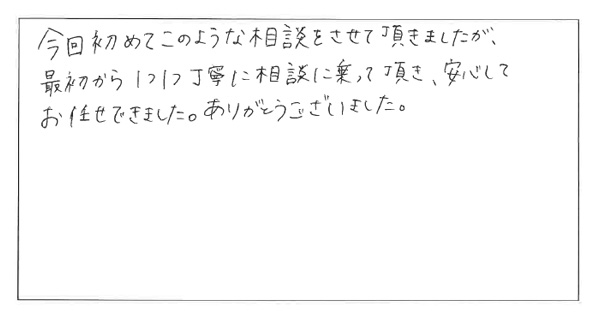 今回初めてこのような相談をさせて頂きましたが、
最初から1つ1つ丁寧に相談に乗って頂き、安心して
お任せできました。ありがとうございました。